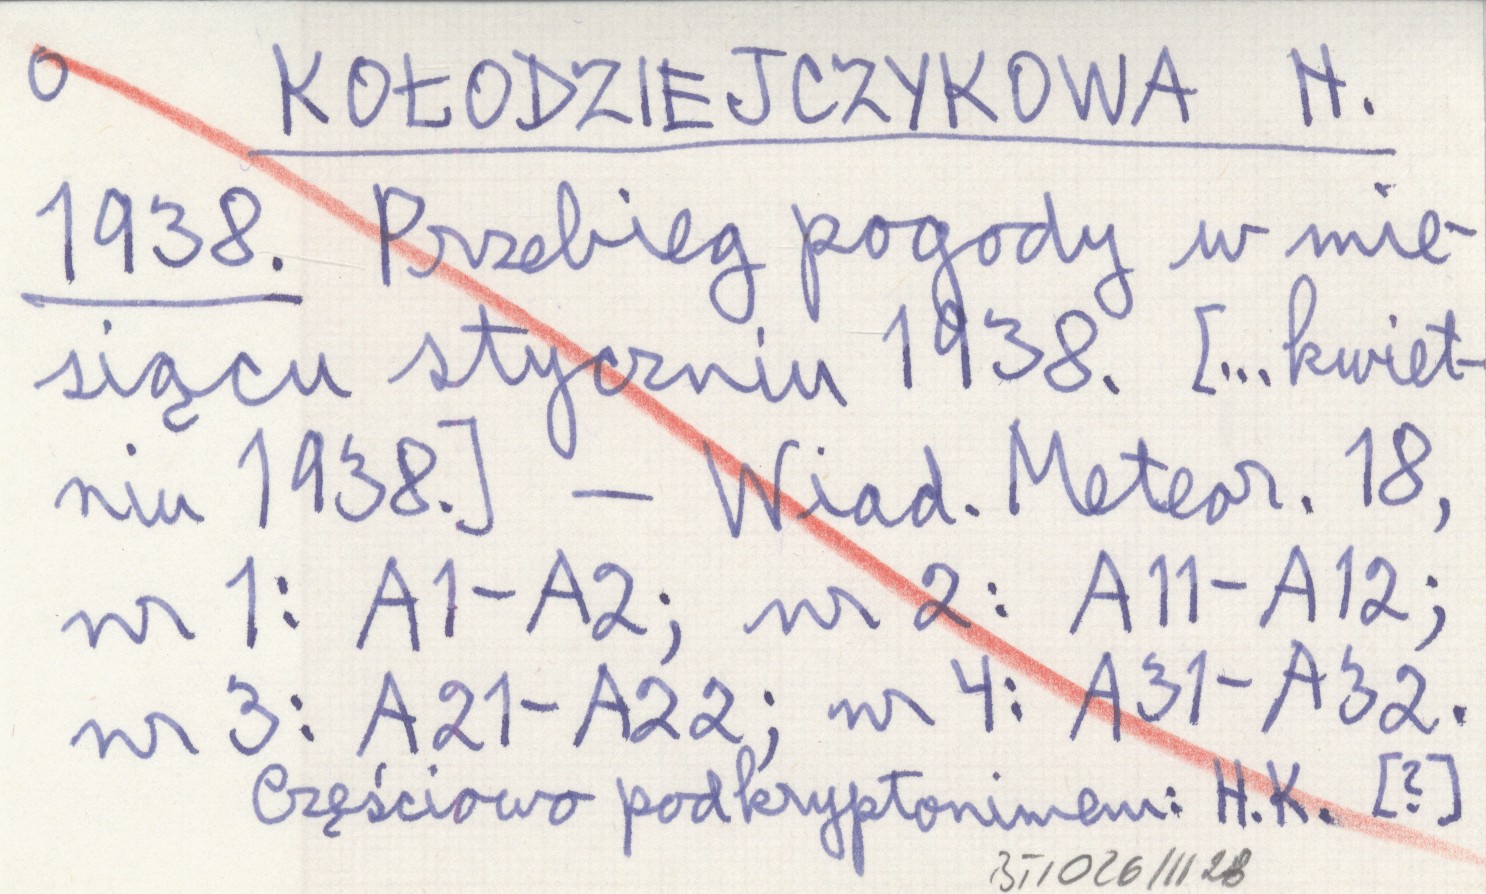 O KOŁODZIEJCZYKOWA H.
1938. Przebieg pogody w mie-
siącu styczniu 1938. [...kwiet-
niu 1938.] — Wiad. Meteor. 18,
nr 1: A1-A2; nr 2: A11-A12;
nr 3: A21-A22; nr 4: A31-A32.
Częściowo pod kryptonimem: H.K. [?]